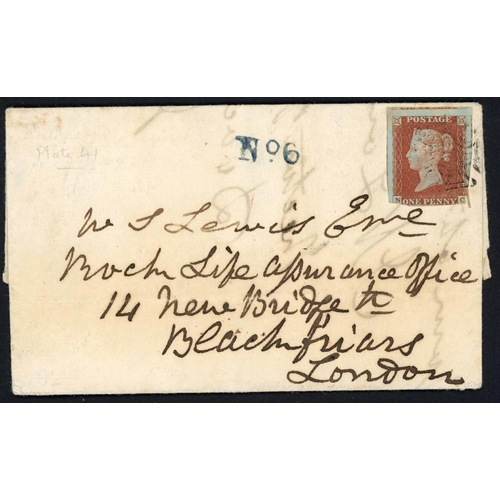 Plate 41
No6
POSTAGE
ONE PENNY
W S Lewis Esqre
Rock Life Assurance Office
14 New Bridge St
Blackfriars
London